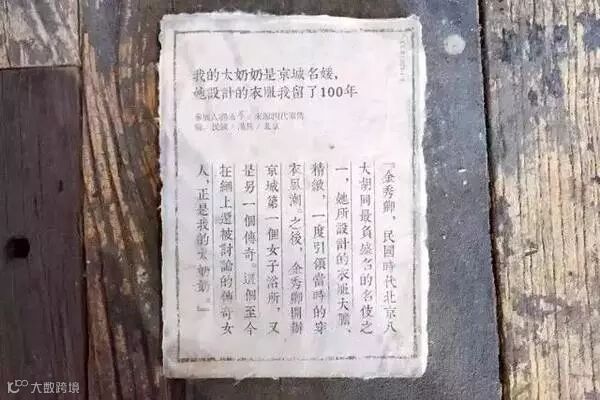 我的太奶奶是京城名媛，
她設計的衣服我留了100年
『金秀卿，民國時代北京八
大胡同最負盛名的名伎之
一，她所設計的衣服大膽、
精緻，一度引領當時的穿
衣風潮。之後，金秀卿開辦
京城第一個女子浴所，又
是另一個傳奇。這個至今
在網上還被討論的傳奇女
人，正是我的太奶奶。』
大数跨境